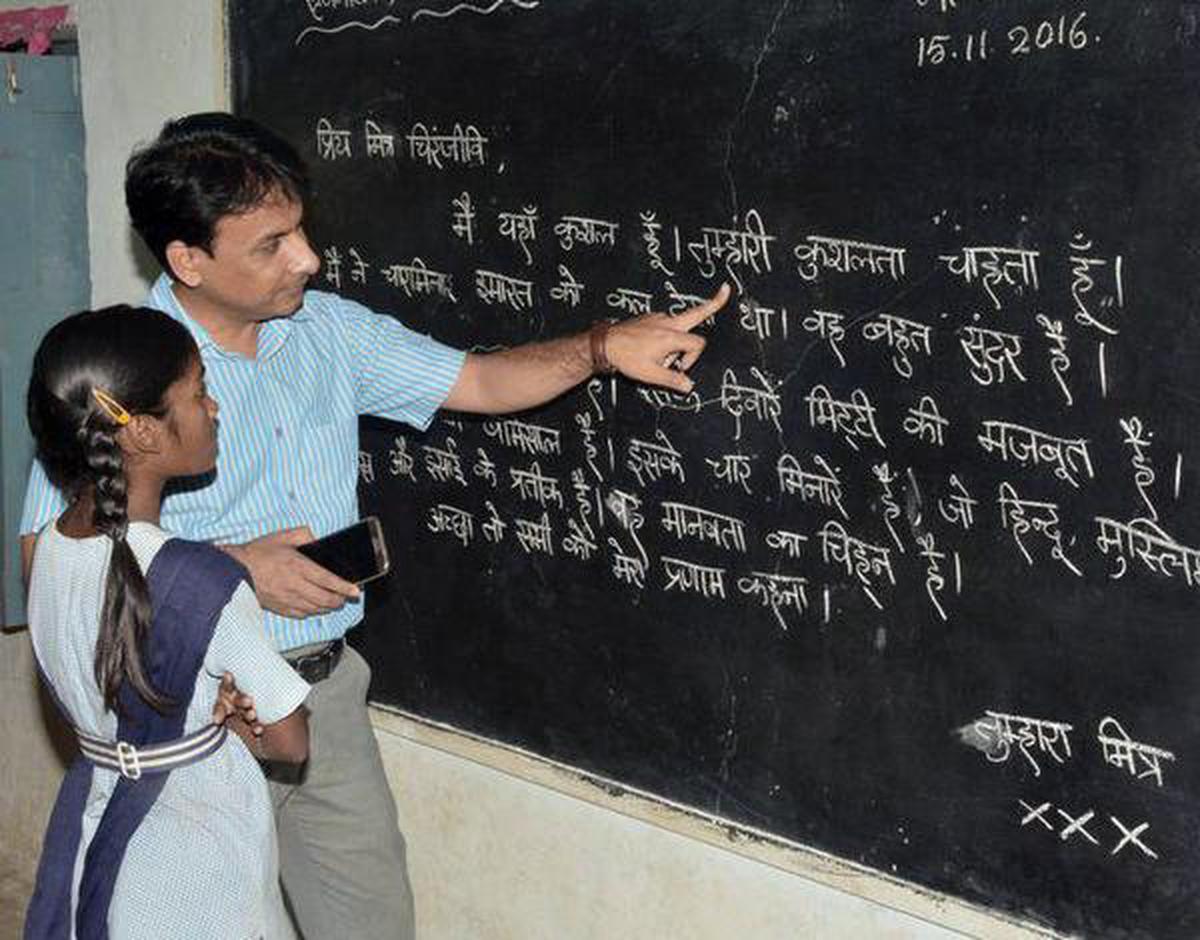 15.11.2016.
प्रिय मित्र चिरंजीवि,
मै यहाँ कुशल हूँ। तुम्हारी कुशलता चाहता हूँ।
मै ने चारमिनार इमारत को कल देखा था। वह बहुत सुंदर है।
है। दिवारें मिट्टी की मज़बूत हैं।
है। इसके चार मिनारें हैं, जो हिन्दू, मुस्लिम
और ईसाई के प्रतीक हैं। वह मानवता का चिह्न है।
अच्छा तो सभी को मेरा प्रणाम कहना।
तुम्हारा मित्र
×××